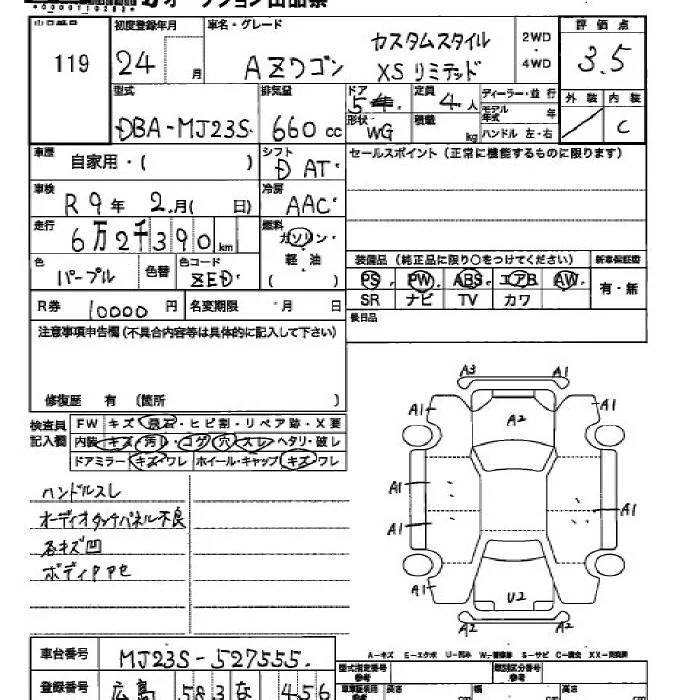 オークション出品票
出品番号 初度登録年月 車名・グレード 評価点
119 24 月 AZワゴン カスタムスタイル XSリミテッド 2WD・4WD 3.5
型式 排気量 ドア 定員 ディーラー・並行 外装 内装
DBA-MJ23S 660cc 5 4人 モデル年式 年 C
形状 WG 積載 kg ハンドル 左・右
車歴 自家用・( ) シフト D AT セールスポイント(正常に機能するものに限ります)
車検 R9年 2月( 日) 冷房 AAC
走行 6万2千390km 燃料 ガソリン・軽油 ( )
装備品(純正品に限り○をつけてください) 新車保証書
色 パープル 色替 色コード ZED PS PW ABS エアB AW 有・無
SR ナビ TV カワ
R券 10000円 名変期限 ・月 日 後日品
注意事項申告欄(不具合内容等は具体的に記入して下さい)
修復歴 有 (箇所 )
検査員記入欄 FW キズ・飛石・ヒビ割・リペア跡・X要
内装 キズ・汚レ・コゲ・穴・スレ・ヘタリ・破レ
ドアミラー キズ・ワレ ホイール・キャップ キズ・ワレ
A3 A1
A1 A2 A1
A1 A1
A1
U2
A2 A2
ハンドルスレ
オーディオタッチパネル不良
各キズ凹
A-キズ E-エクボ U-凹み W-補修跡 S-サビ C-腐食 XX-交換済
車台番号 MJ23S-527555
型式指定番号 類別区分番号
登録番号 広島 583 な 456
長さ cm 幅 cm 高さ cm